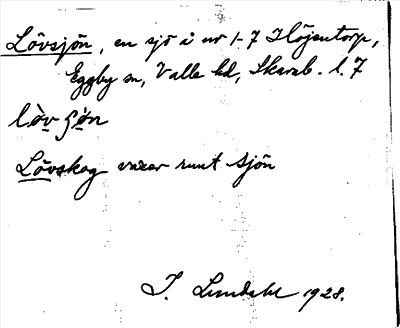 Lövsjön, en sjö å nr 1-7 Höjentorp,
Eggby sn, Valle hd, Skarab. l. 7
lòv ʂön
Lövskog växer runt sjön
J. Lundahl 1928.